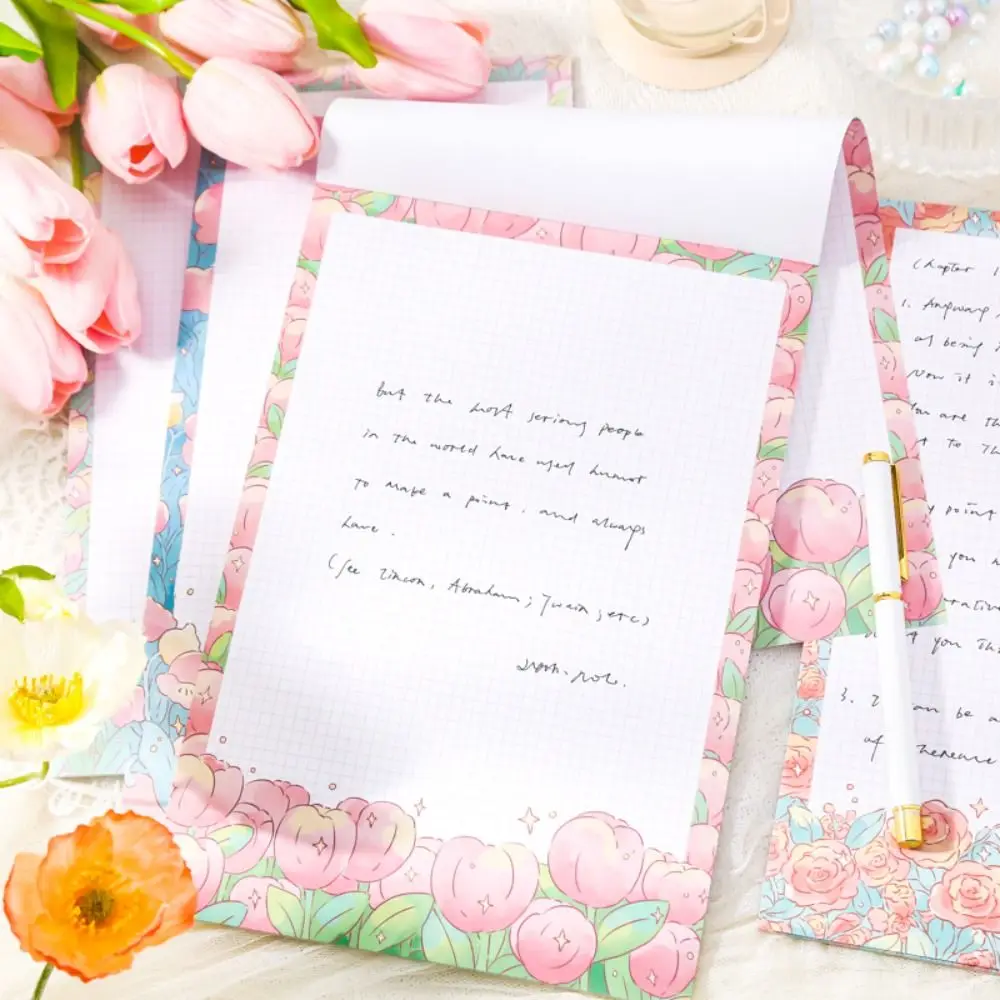 but the most serious people
in the world have used humor
to make a point, and always
have.
(see Lincoln, Abraham; Twain, etc)
Chapter 1
1. Anyway,
of being
Now it i
You are th
t to Th
y point
you
rative
t you Thi
3. I can be a
of